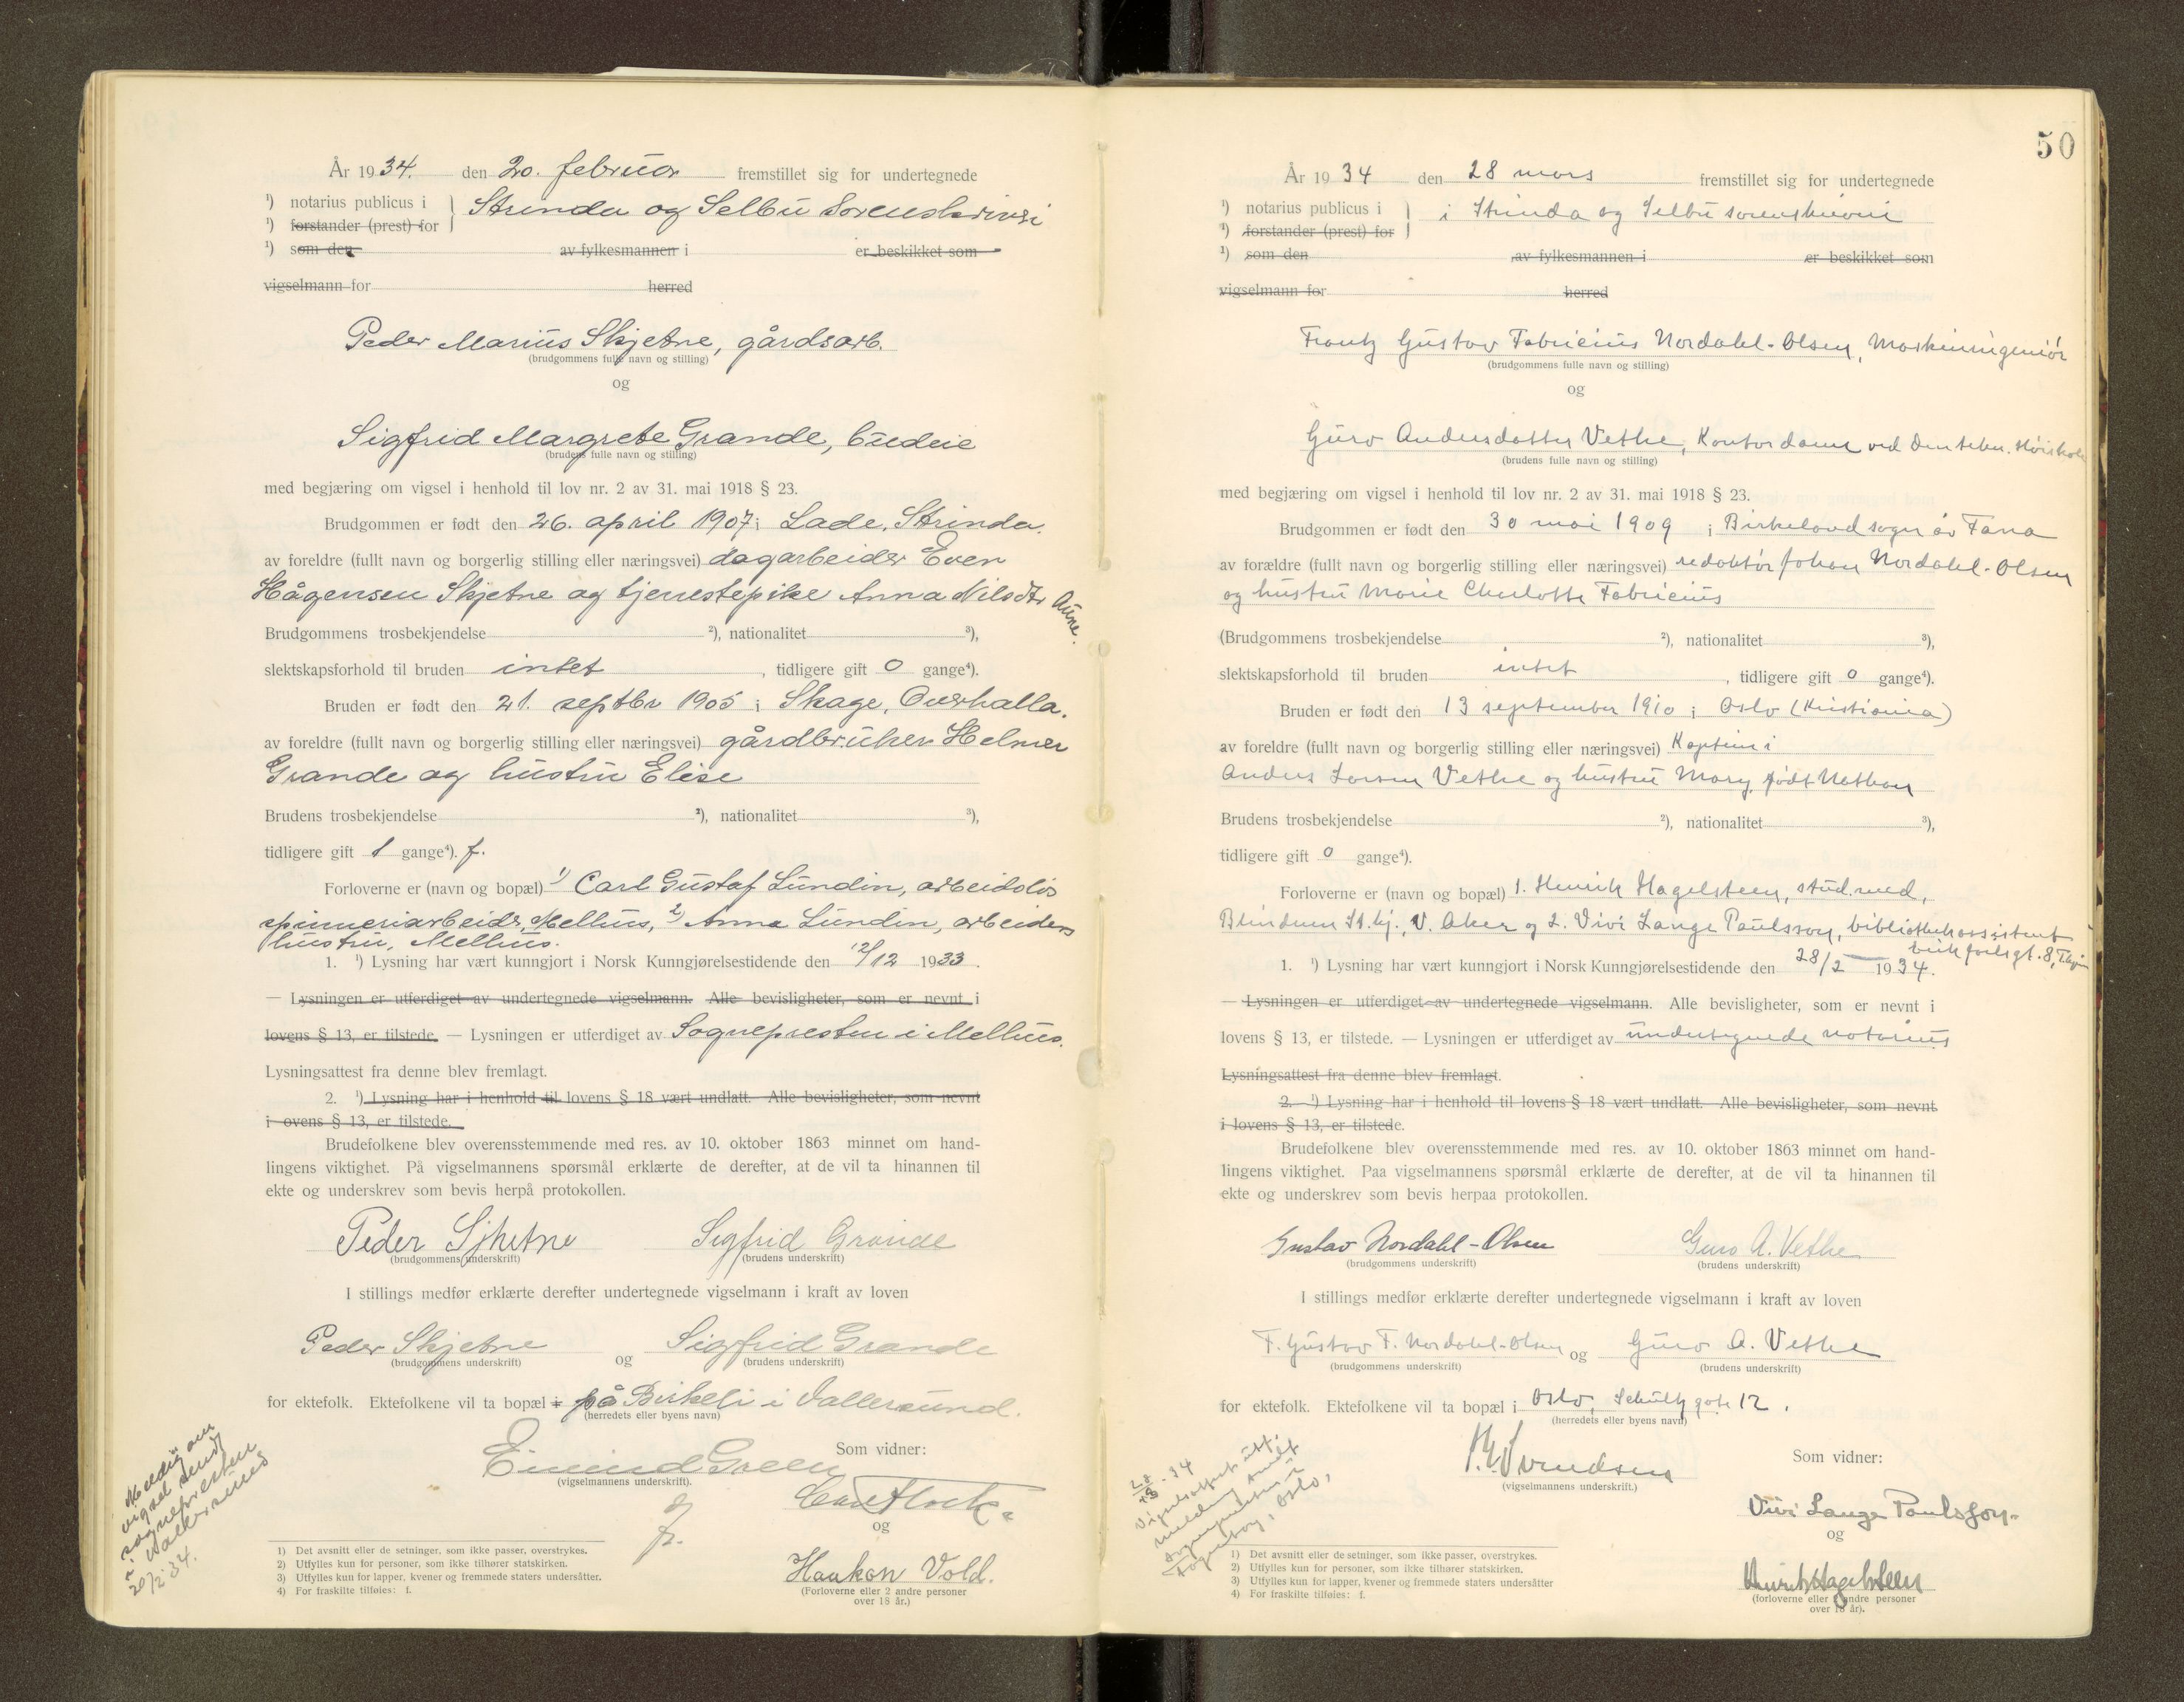 År 1934. den 20. februar fremstillet sig for undertegnede
¹) notarius publicus i } Strinda og Selbu Sorenskriveri
¹) forstander (prest) for
¹) som den av fylkesmannen i er beskikket som
vigselmann for herred
Peder Marius Skjetne, gårdsarb.
(brudgommens fulle navn og stilling)
og
Sigfrid Margrete Grande, budeie
(brudens fulle navn og stilling)
med begjæring om vigsel i henhold til lov nr. 2 av 31. mai 1918 § 23.
Brudgommen er født den 26. april 1907 i Lade, Strinda.
av foreldre (fullt navn og borgerlig stilling eller næringsvei) dagarbeider Even
Hågensen Skjetne og tjenestepike Anna Nilsdtr Aune.
Brudgommens trosbekjendelse ²), nationalitet ³),
slektskapsforhold til bruden intet, tidligere gift 0 gange⁴).
Bruden er født den 21. septbr 1905 i Skage, Overhalla.
av foreldre (fullt navn og borgerlig stilling eller næringsvei) gårdbruker Helmer
Grande og hustru Elise
Brudens trosbekjendelse ²), nationalitet ³),
tidligere gift 1 gange⁴). f.
Forloverne er (navn og bopæl) 1) Carl Gustaf Lundin, arbeidsløs
spinneriarbeider, Melhus, 2) Anna Lundin, arbeiders
hustru, Melhus.
1. ¹) Lysning har vært kunngjort i Norsk Kunngjørelsestidende den 12/12 1933.
— Lysningen er utferdiget av undertegnede vigselmann. Alle bevisligheter, som er nevnt i
lovens § 13, er tilstede. — Lysningen er utferdiget av Sognepresten i Melhus.
Lysningsattest fra denne blev fremlagt.
2. ¹) Lysning har i henhold til lovens § 18 vært undlatt. Alle bevisligheter, som nevnt
i ovens § 13, er tilstede.
Brudefolkene blev overensstemmende med res. av 10. oktober 1863 minnet om hand-
lingens viktighet. På vigselmannens spørsmål erklærte de derefter, at de vil ta hinannen til
ekte og underskrev som bevis herpå protokollen.
Peder Sjketne Sigfrid Grande
(brudgommens underskrift) (brudens underskrift)
I stillings medfør erklærte derefter undertegnede vigselmann i kraft av loven
Peder Skjetne og Sigfrid Grande
(brudgommens underskrift) (brudens underskrift)
for ektefolk. Ektefolkene vil ta bopæl i på Birkeli i Vallersund.
(herredets eller byens navn)
Som vidner:
Eivind Green
(vigselmannens underskrift).
og
Haakon Vold.
(Forloverne eller 2 andre personer
over 18 år.)
Meldig om
vigsel sendt
sognepresten
i Vallersund
20/2 34.
1) Det avsnitt eller de setninger, som ikke passer, overstrykes.
2) Utfylles kun for personer, som ikke tilhører statskirken.
3) Utfylles kun for lapper, kvener og fremmede staters undersåtter.
4) For fraskilte tilføies: f.
50
År 1934 den 28 mars fremstillet sig for undertegnede
¹) notarius publicus i } i Strinda og Selbu sorenskriveri
¹) forstander (prest) for
¹) som den av fylkesmannen i er beskikket som
vigselmann for herred
Frantz Gustav Fabricius Nordahl-Olsen, Maskiningeniør
(brudgommens fulle navn og stilling)
og
Guro Andersdatter Vethe, Kontordame ved Den tekn. Høiskole
(brudens fulle navn og stilling)
med begjæring om vigsel i henhold til lov nr. 2 av 31. mai 1918 § 23.
Brudgommen er født den 30 mai 1909 i Birkeland sogn av Fana
av forældre (fullt navn og borgerlig stilling eller næringsvei) redaktør Johan Nordahl-Olsen
og hustru Marie Charlotte Fabricius
(Brudgommens trosbekjendelse ²), nationalitet ³),
slektskapsforhold til bruden intet, tidligere gift 0 gange⁴).
Bruden er født den 13 september 1910 i Oslo (Kristiania)
av foreldre (fullt navn og borgerlig stilling eller næringsvei) Kaptein i
Anders Larsen Vethe og hustru Mary, født Nathan
Brudens trosbekjendelse ²), nationalitet ³),
tidligere gift 0 gange⁴).
Forloverne er (navn og bopæl) 1. Henrik Hagelsteen, stud. med,
Blindern St. hj., V. Aker og 2. Vivi Lange Paulsson, bibliotekassistent
1. ¹) Lysning har vært kunngjort i Norsk Kunngjørelsestidende den 28/2 1934.
— Lysningen er utferdiget av undertegnede vigselmann. Alle bevisligheter, som er nevnt i
lovens § 13, er tilstede. — Lysningen er utferdiget av undertegnede notarius
Lysningsattest fra denne blev fremlagt.
2. ¹) Lysning har i henhold til lovens § 18 vært undlatt. Alle bevisligheter, som nevnt
i lovens § 13, er tilstede.
Brudefolkene blev overensstemmende med res. av 10. oktober 1863 minnet om hand-
lingens viktighet. Paa vigselmannens spørsmål erklærte de derefter, at de vil ta hinannen til
ekte og underskrev som bevis herpaa protokollen.
Gustav Nordahl-Olsen Guro A. Vethe
(brudgommens underskrift) (brudens underskrift)
I stillings medfør erklærte derefter undertegnede vigselmann i kraft av loven
F. Gustav F. Nordahl-Olsen og Guro A. Vethe
(brudgommens underskrift) (brudens underskrift)
for ektefolk. Ektefolkene vil ta bopæl i Oslo, Schultz gate 12.
(herredets eller byens navn)
Som vidner:
(vigselmannens underskrift.)
Vivi Lange Paulsson.
og
Henrik Hagelsteen
(forloverne eller 2 andre personer
over 18 år).
28/3-34
Vigselsattest utst.
melding sendt
sognepresten i
Fagerborg, Oslo.
1) Det avsnitt eller de setninger, som ikke passer, overstrykes.
2) Utfylles kun for personer, som ikke tilhører statskirken.
3) Utfylles kun for lapper, kvener og fremmede staters undersåtter
4) For fraskilte tilføies: f.